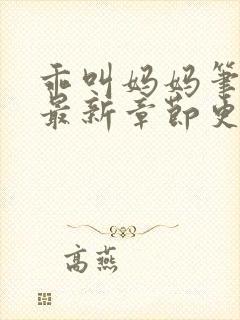 乖叫妈妈笔
最新章节史
高燕